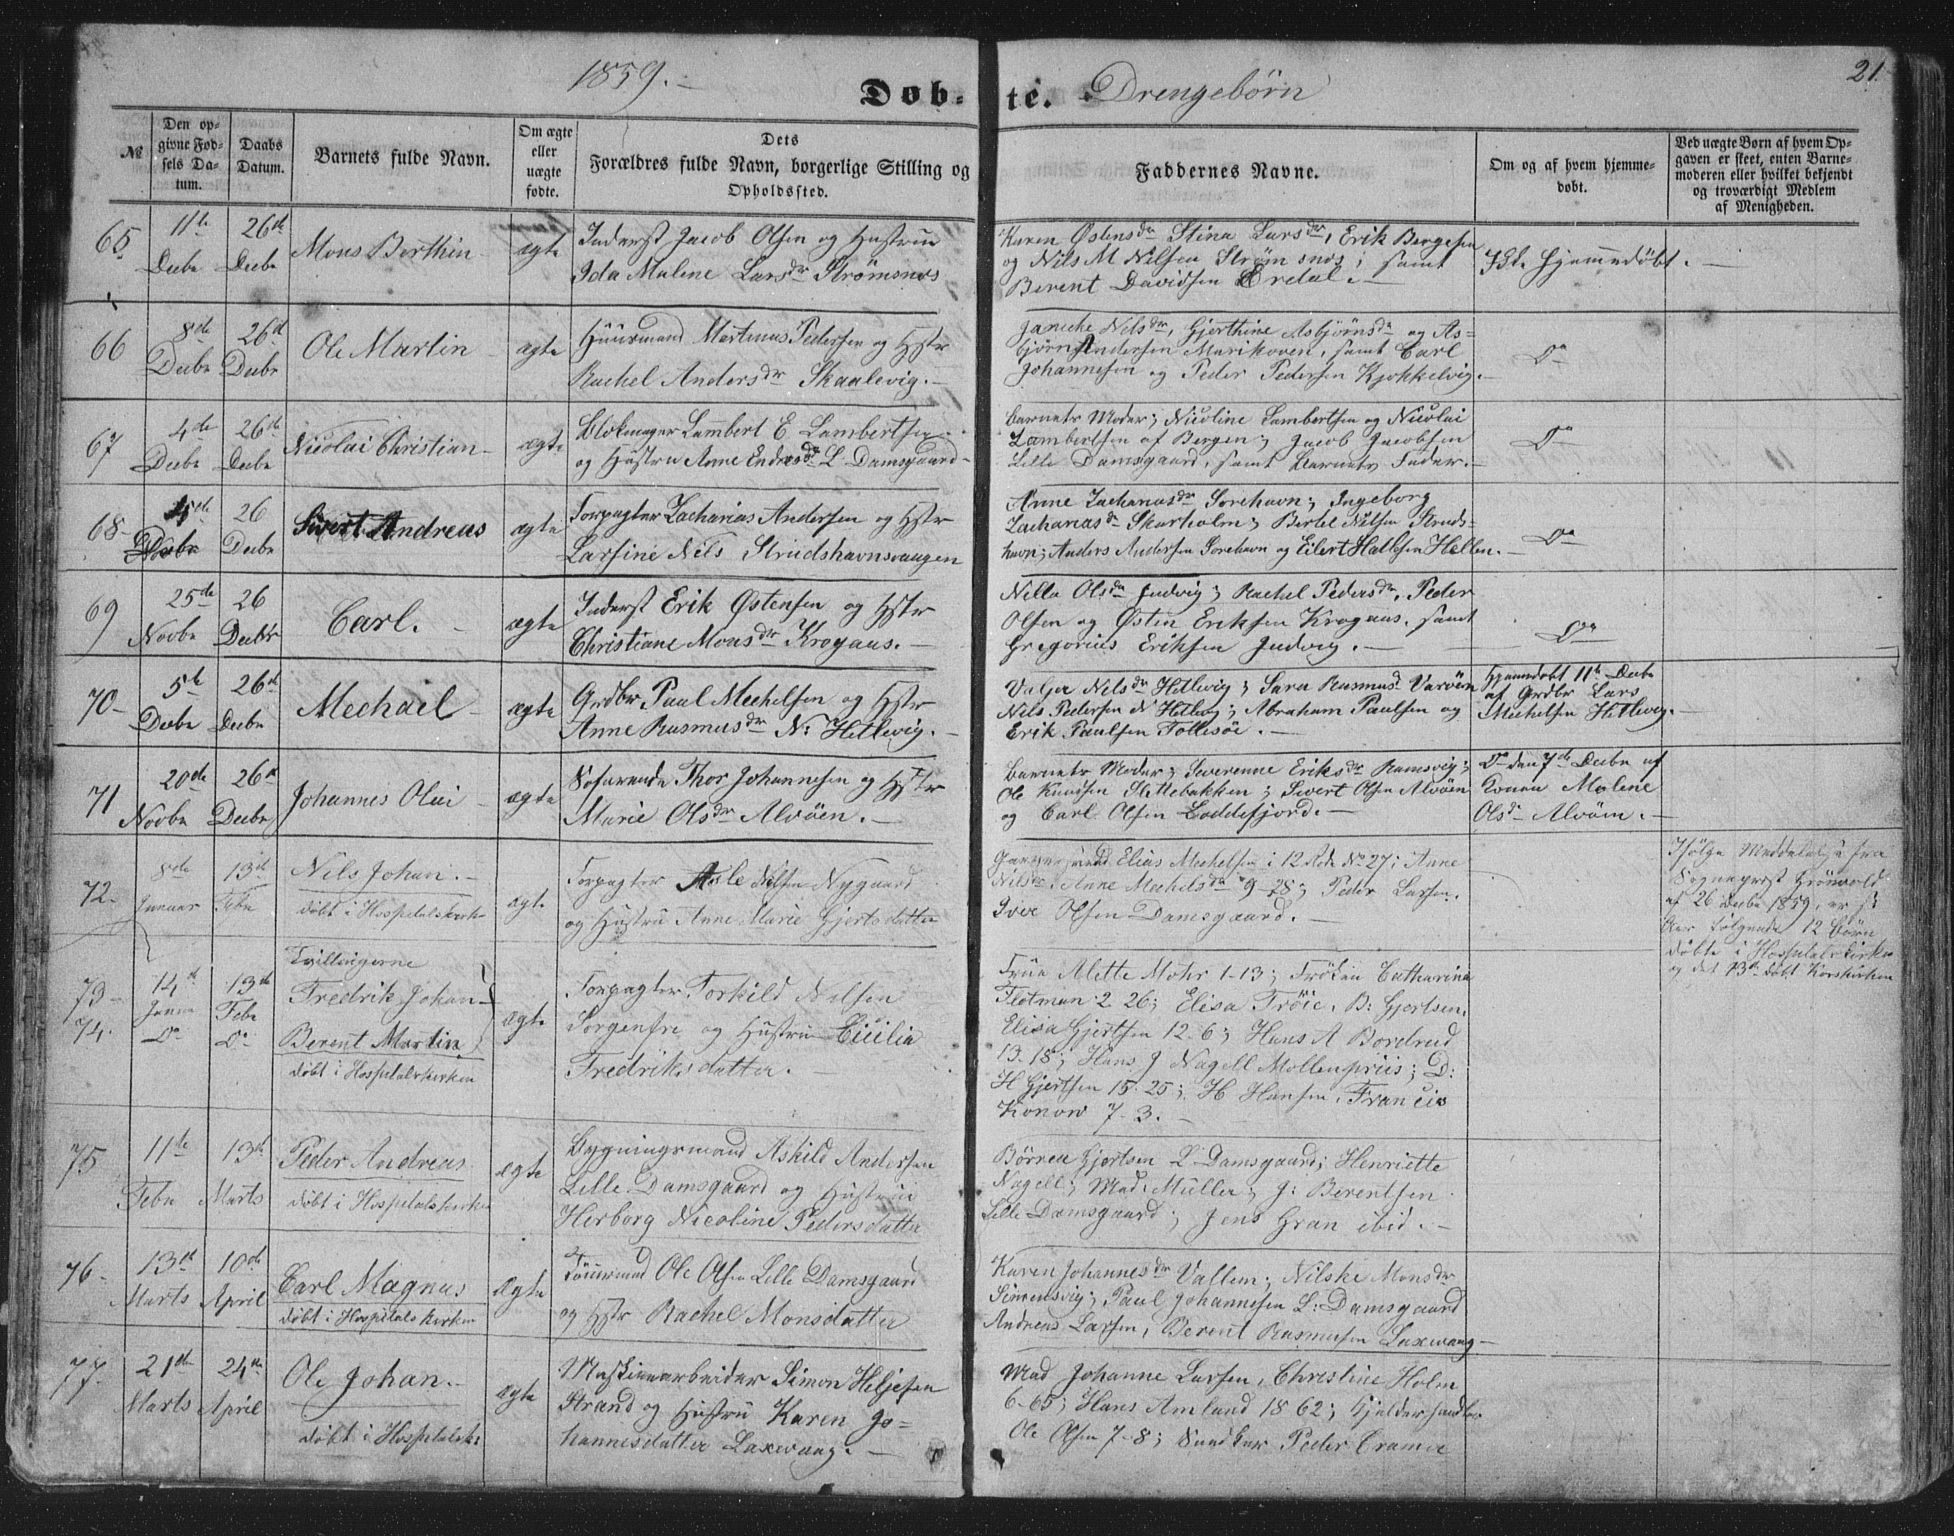 1859.
Døb-te. Drengebørn
21.
№
Den op-
givne Fød-
sels Da-
tum.
Daabs
Datum.
Barnets fulde Navn.
Om ægte
eller
uægte
fødte.
Dets
Forældres fulde Navn, borgerlige Stilling og
Opholdssted.
Faddernes Navne.
Om og af hvem hjemme-
døbt.
Ved uægte Børn af hvem Op-
gaven er skeet, enten Barne-
moderen eller hvilket bekjendt
og troværdigt Medlem
af Menigheden.
65
11te
Decbr
26de
Decbr
Mons Berthin
ægte
Inderst Jacob Olsen og Hustrue
Ida Malene Larsdr Strømsnes
Karen Østensdr Stina Larsdr, Erik Bergesen
og Nils M Nilsen Strømsnes; samt
Berent Davidsen Eredal.
Ikke hjemmedøbt.
66
8de
Decbr
26de
Decbr
Ole Martin
ægte
Huusmand Martinus Pedersen og Hstr
Rachel Andersdr Skaalevig.
Janicke Nilsdr, Gjerthine Asbjørnsdr og As-
bjørn Andersen Marikoven, samt Carl
Johannesen og Peder Pedersen Kjøkkelvig.
Do
67
4de
Decbr
26de
Decbr
Nicolai Christian
ægte
Blokmager Lambert E Lambertsen
og Hustru Anne Endresdr L Damsgaard
Barnets Moder; Nicoline Lambertsen og Nicolai
Lambertsen af Bergen; Jacob Jacobsen
Lille Damsgaard, samt Barnets Fader.
Do
68
26
Decbr
Sivert Andreas
ægte
Forpagter Zacharias Andersen og Hstr
Larsine Nils Strudshavnsvaagen
Anne Zachariasdr Sorehavn; Ingeborg
Zachariasdr Skarholm; Bertel Nilsen Struds-
havn; Anders Andersen Sorehavn og Eilert Hatlesen Hellen.
Do
69
25de
Novbr
26
Decbr
Carl.
ægte
Inderst Erik Østensen og Hstr
Christiane Monsdr Krogaas.
Nille Olsdr Juvig; Rachel Pedersdr, Peder
Olsen og Østen Eriksen Krogaas, samt
Gregorius Eriksen Juvig.
Do
70
5te
Decbr
26de
Decbr
Mechael
ægte
Grdbr Paul Mechelsen og Hstr
Anne Rasmusdr N: Hetlevig.
Valjer Nilsdr Hetlevig; Sara Rasmusd Varøen
Nils Pedersen N Hetlevig; Abraham Paulsen og
Erik Paulsen Follesøe.
Hjemmedøbt 11te Decbr
af Grdbr Lars
Mechelsen Hetlevig.
71
20de
Novbr
26de
Decbr
Johannes Olai
ægte
Søfarende Thor Johannesen og Hstr
Marie Olsdr Alvøen.
Barnets Moder; Severenne Eriksdr Ramsvig;
Ole Knudsen Slettebakken; Sivert Olsen Alvøen
og Carl Olsen Loddefjord.
Do den 7de Decbr af
Konen Malene
Olsd Alvøen.
72.
8de
Januar
13de
Febr
Nils Johan.
døbt i Hospitalskirk
ægte
Forpagter Atle Nilsen Nygaard
og Hustru Anne Marie Gjertsdatter
Elias Mechelsen i 12 Rode No 27; Anne
Nilsdr, Anne Mechelsdr 9-28; Peder Larsen.
Iver Olsen Damsgaard.
Ifølge Meddelelse fra
Sognepræst Grønvold
af 26 Decbr 1859, er
følgende 12 Børn
døbte i Hospitalskirken
og det 13de døbt Korskirken
73-
74.
14de
Janua
Do
13de
Febr
Do
Tvillingerne
Fredrik Johan
Berent Martin
døbt i Hospitalskirken
ægte
Forpagter Torkild Nilsen
Sorgenfre og Hustru Cicilia
Fredriksdatter.
Frue Alette Mohr 1-13; Frøken Catharina
Flotman 2-26; Elisa Trøie, B: Gjertsen,
Elisa Gjertsen 12-6; Hans A Bordrud
13-18; Hans J Nagell Mollenpriis; D:
H Gjertsen 15-25; H Hansen, Francis
Konow 7-3.
75
11te
Febr
13de
Marts
Peder Andreas
døbt i Hospitalskirken
ægte
Bygningsmand Askild Andersen
Lille Damsgaard og Hustrue
Herborg Nicoline Pedersdatter
Børrea Gjertsen L Damsgaard; Henriette
Nagell; Mad: Müller; J: Berentsen
Lille Damsgaard; Jens Gran ibid.
76-
13de
Marts
10de
April
Carl Magnus
døbt i Hospitalskirken
ægte
Ole Olsen Lille Damsgaard
og Hstr Rachel Monsdatter
Karen Johannesdr Vallem; Nilske Monsdr
Simensvig; Paul Johannesen L: Damsgaard
Andreas Larsen, Berent Rasmusen Laxevaag
77.
21de
Marts
24de
April
Ole Johan.
døbt i Hospitalsk:
ægte
Maskinarbeider Simon Heljesen
Strand og Hustru Karen Jo-
hannesdatter Laxevaag.
Mad Johanne Larsen, Christine Holm
6-65; Hans Amland 18 62; Gjelder
Ole Olsen 7-8; Peder Cramer